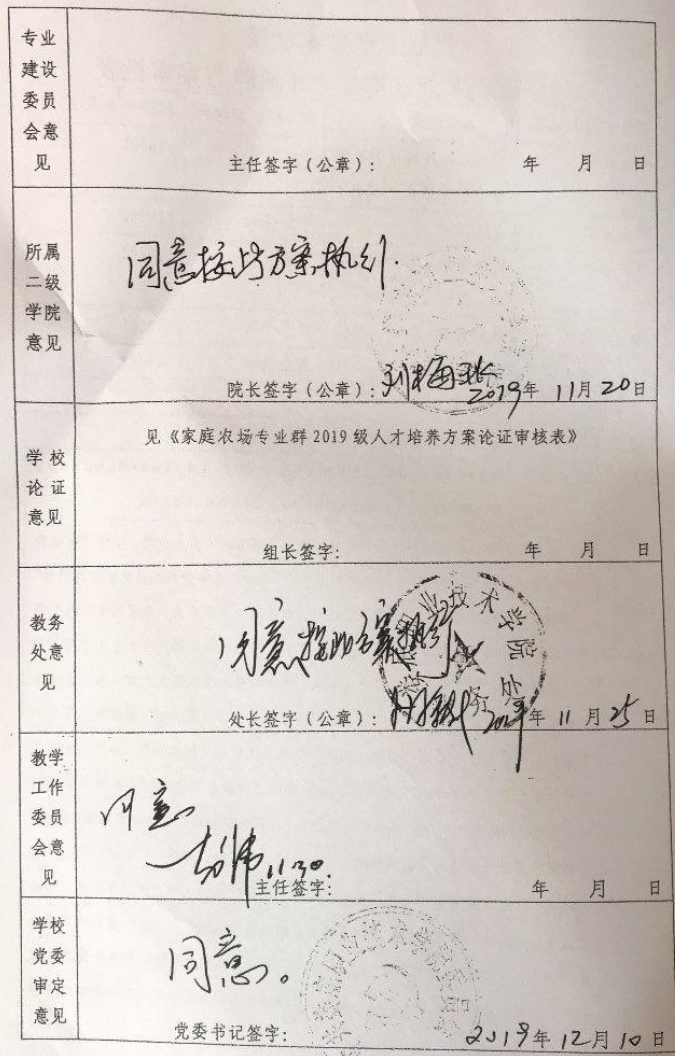 专业
建设
委员
会意
见
主任签字（公章）： 年 月 日
所属
二级
学院
意见
同意按此方案执行.
院长签字（公章）： 2019年 11月 20日
见《家庭农场专业群 2019 级人才培养方案论证审核表》
学校
论证
意见
组长签字： 年 月 日
教务
处意
见
同意按此方案执行
职业技术学院
处长签字（公章）： 2019年 11月 25日
教学
工作
委员
会意
见
同意
11.30.
主任签字： 年 月 日
学校
党委
审定
意见
同意。
党委书记签字： 2019年 12月 10日